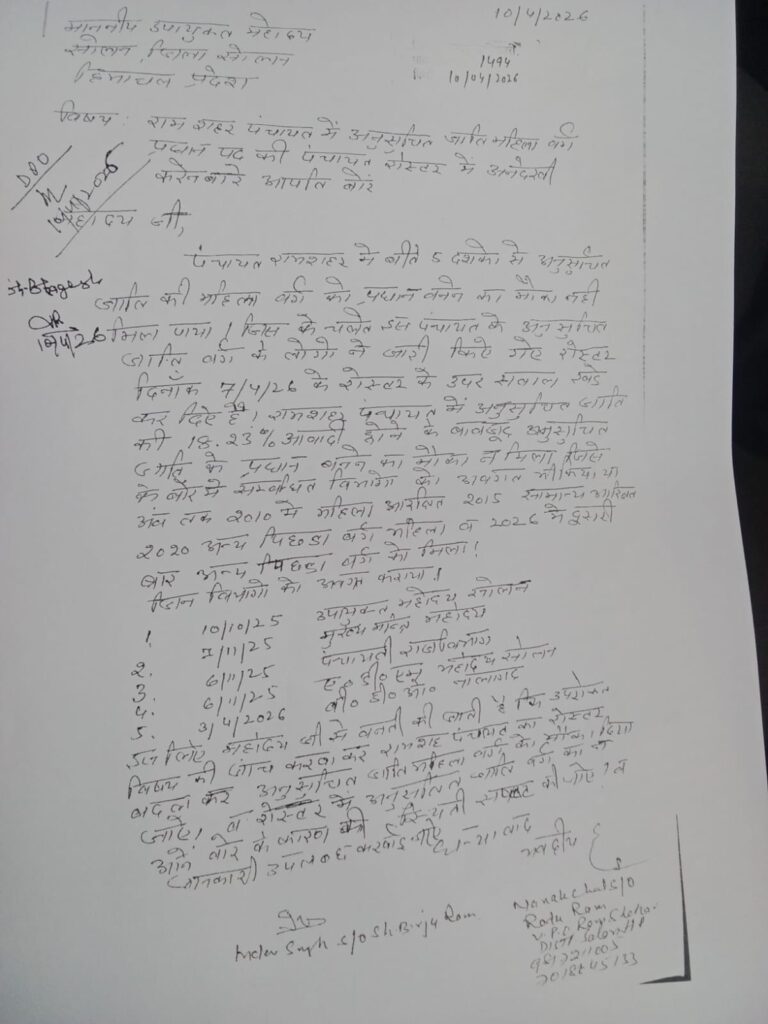 10/4/2026
माननीय उपायुक्त महोदय
सोलन, जिला सोलन
हिमाचल प्रदेश
1494
10/04/2026
विषय : राम शहर पंचायत में अनुसुचित जाति महिला वर्ग
प्रधान पद की पंचायत रोस्टर में अनदेखी
करने बारे आपति बारे
DPO
10/4/2026
महोदय जी,
पंचायत रामशहर में बीते 5 दशको से अनुसुचित
जाति की महिला वर्ग को प्रधान बनने का मौका नही
मिला पाया। जिस के चलते इस पंचायत के अनुसुचित
10/4/26
जाति वर्ग के लोगो ने जारी किए गए रोस्टर
दिनाँक 7/4/26 के रोस्टर के उपर सवाल खडे
कर दिए है। रामशहर पंचायत में अनुसुचित जाति
की 18.23% आवादी होने के बावजूद अनुसुचित
जाति के प्रधान बनने का मौका न मिला जिसे
के बारे मे सम्बधित विभागो को अवगत भी किया था
अब तक 2010 मे महिला आरक्षित 2015 सामान्य
2020 अन्य पिछडा वर्ग महिला व 2026 मे दूसरी
बार अन्य पिछडा वर्ग को मिला!
जिन विभागो को अवगत कराया!
1. 10/10/25 उपायुक्त महोदय सोलन
2. 7/11/25 मुख्य मन्त्रि महोदय
3. 6/11/25 पंचायती राज विभाग
4. 6/11/25 ए० डी० एम् महोदय सोलन
5. 3/4/2026 बी० डी० ओ० नालागढ
इस लिए महोदय जी से वनती की जाती है कि उपरोक्त
विषय की जाच करवा कर रामशहर पंचायत का रोस्टर
बदला कर अनुसुचित जाति महिला वर्ग को मौका दिया
जाऐ। व रोस्टर में अनुसुचित जाति वर्ग का न
आने बारे के कारण की स्थिती स्पष्ट की जाऐ। व
जानकारी उपलब्ध करवाई जाऐ
धन्यावाद
भवदीय
Nanak Chand S/O
Ratu Ram
V.P.O Ram Shehar
Distt Solan HP
Inder Singh S/O Sh Birju Ram